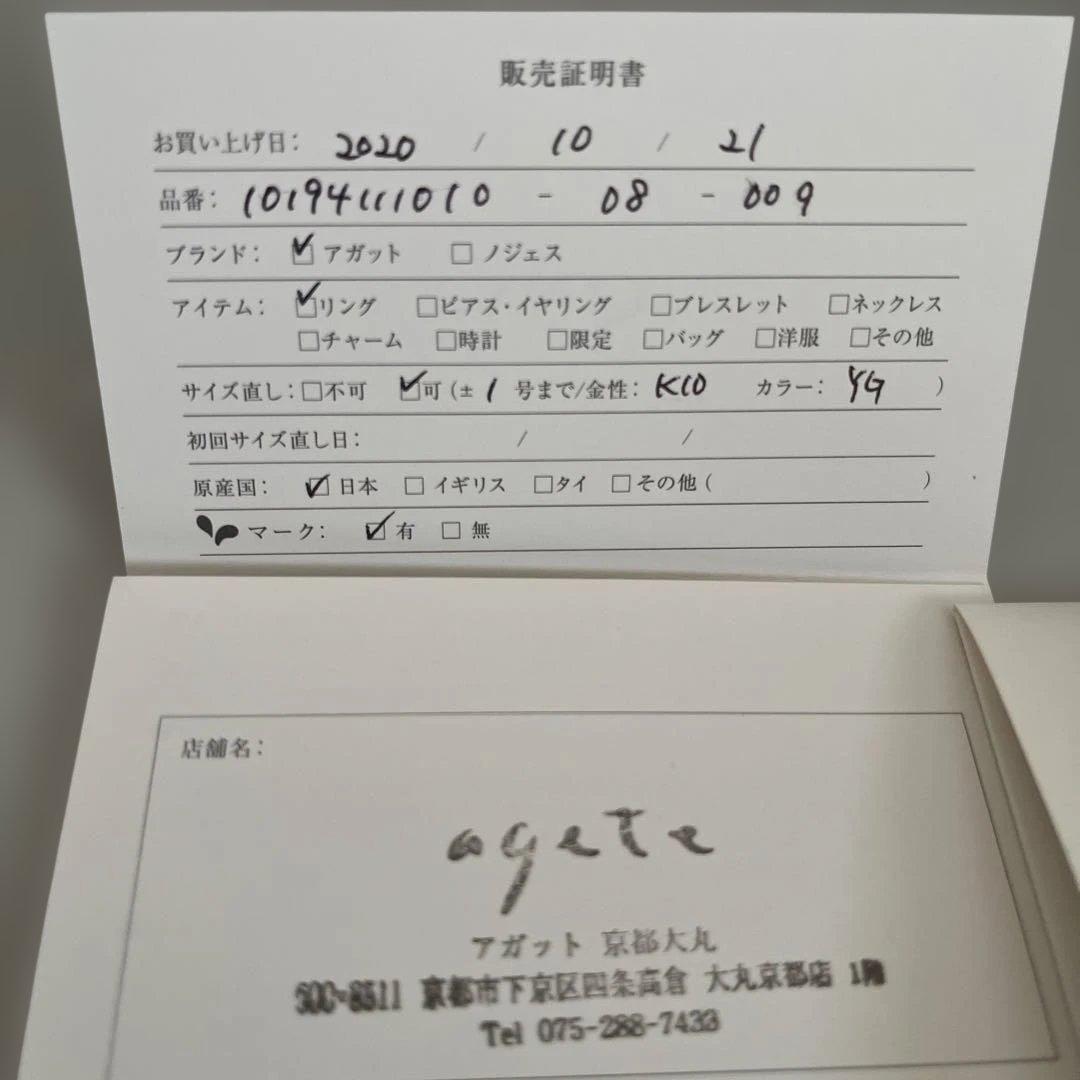 販売証明書
お買い上げ日： 2020 / 10 / 21
品番： 10194111010 - 08 - 009
ブランド： ☑ アガット □ ノジェス
アイテム： ☑リング □ピアス・イヤリング □ブレスレット □ネックレス
□チャーム □時計 □限定 □バッグ □洋服 □その他
サイズ直し：□不可 ☑可（± 1 号まで/金性： K10 カラー： YG ）
初回サイズ直し日： / /
原産国： ☑日本 □イギリス □タイ □その他（ ）
マーク： ☑有 □無
店舗名：
agete
アガット 京都大丸
600-8511 京都市下京区四条高倉 大丸京都店 1階
Tel 075-288-7433